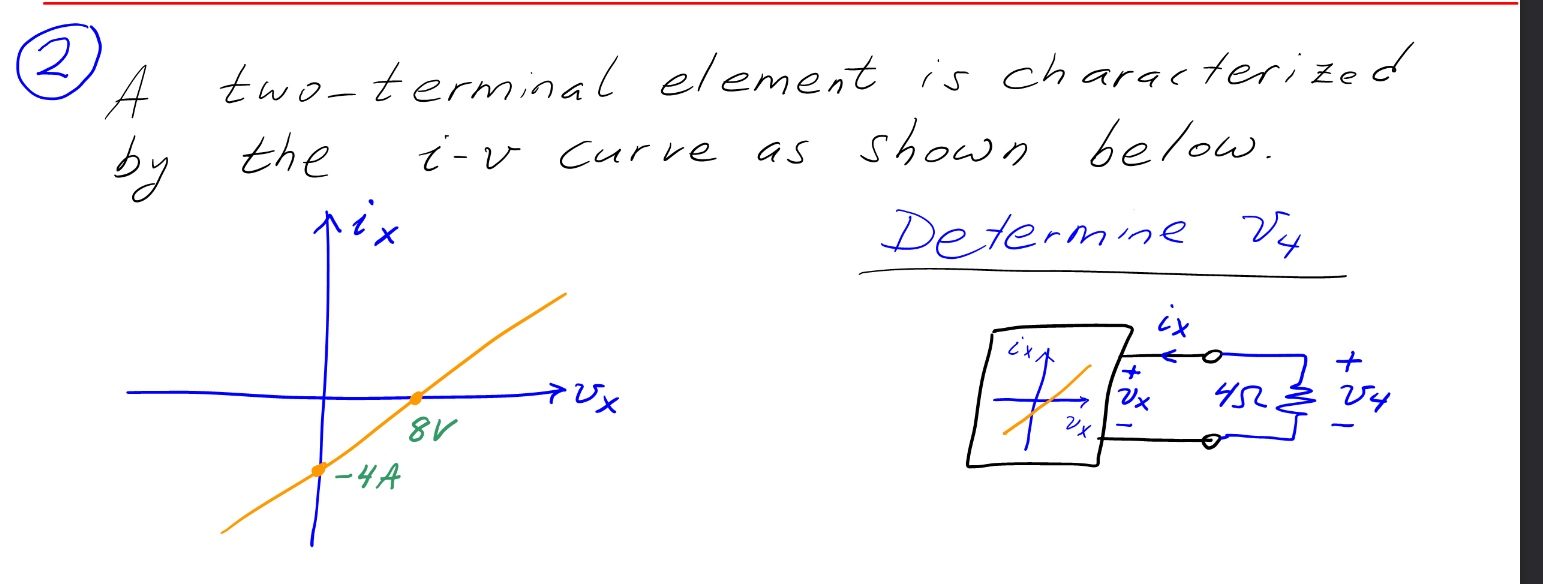 2
A two-terminal element is characterized
by the i-v curve as shown below.
Determine v4
ix
vx
8V
-4A
ix
ix
vx
+
vx
-
4Ω
+
v4
-